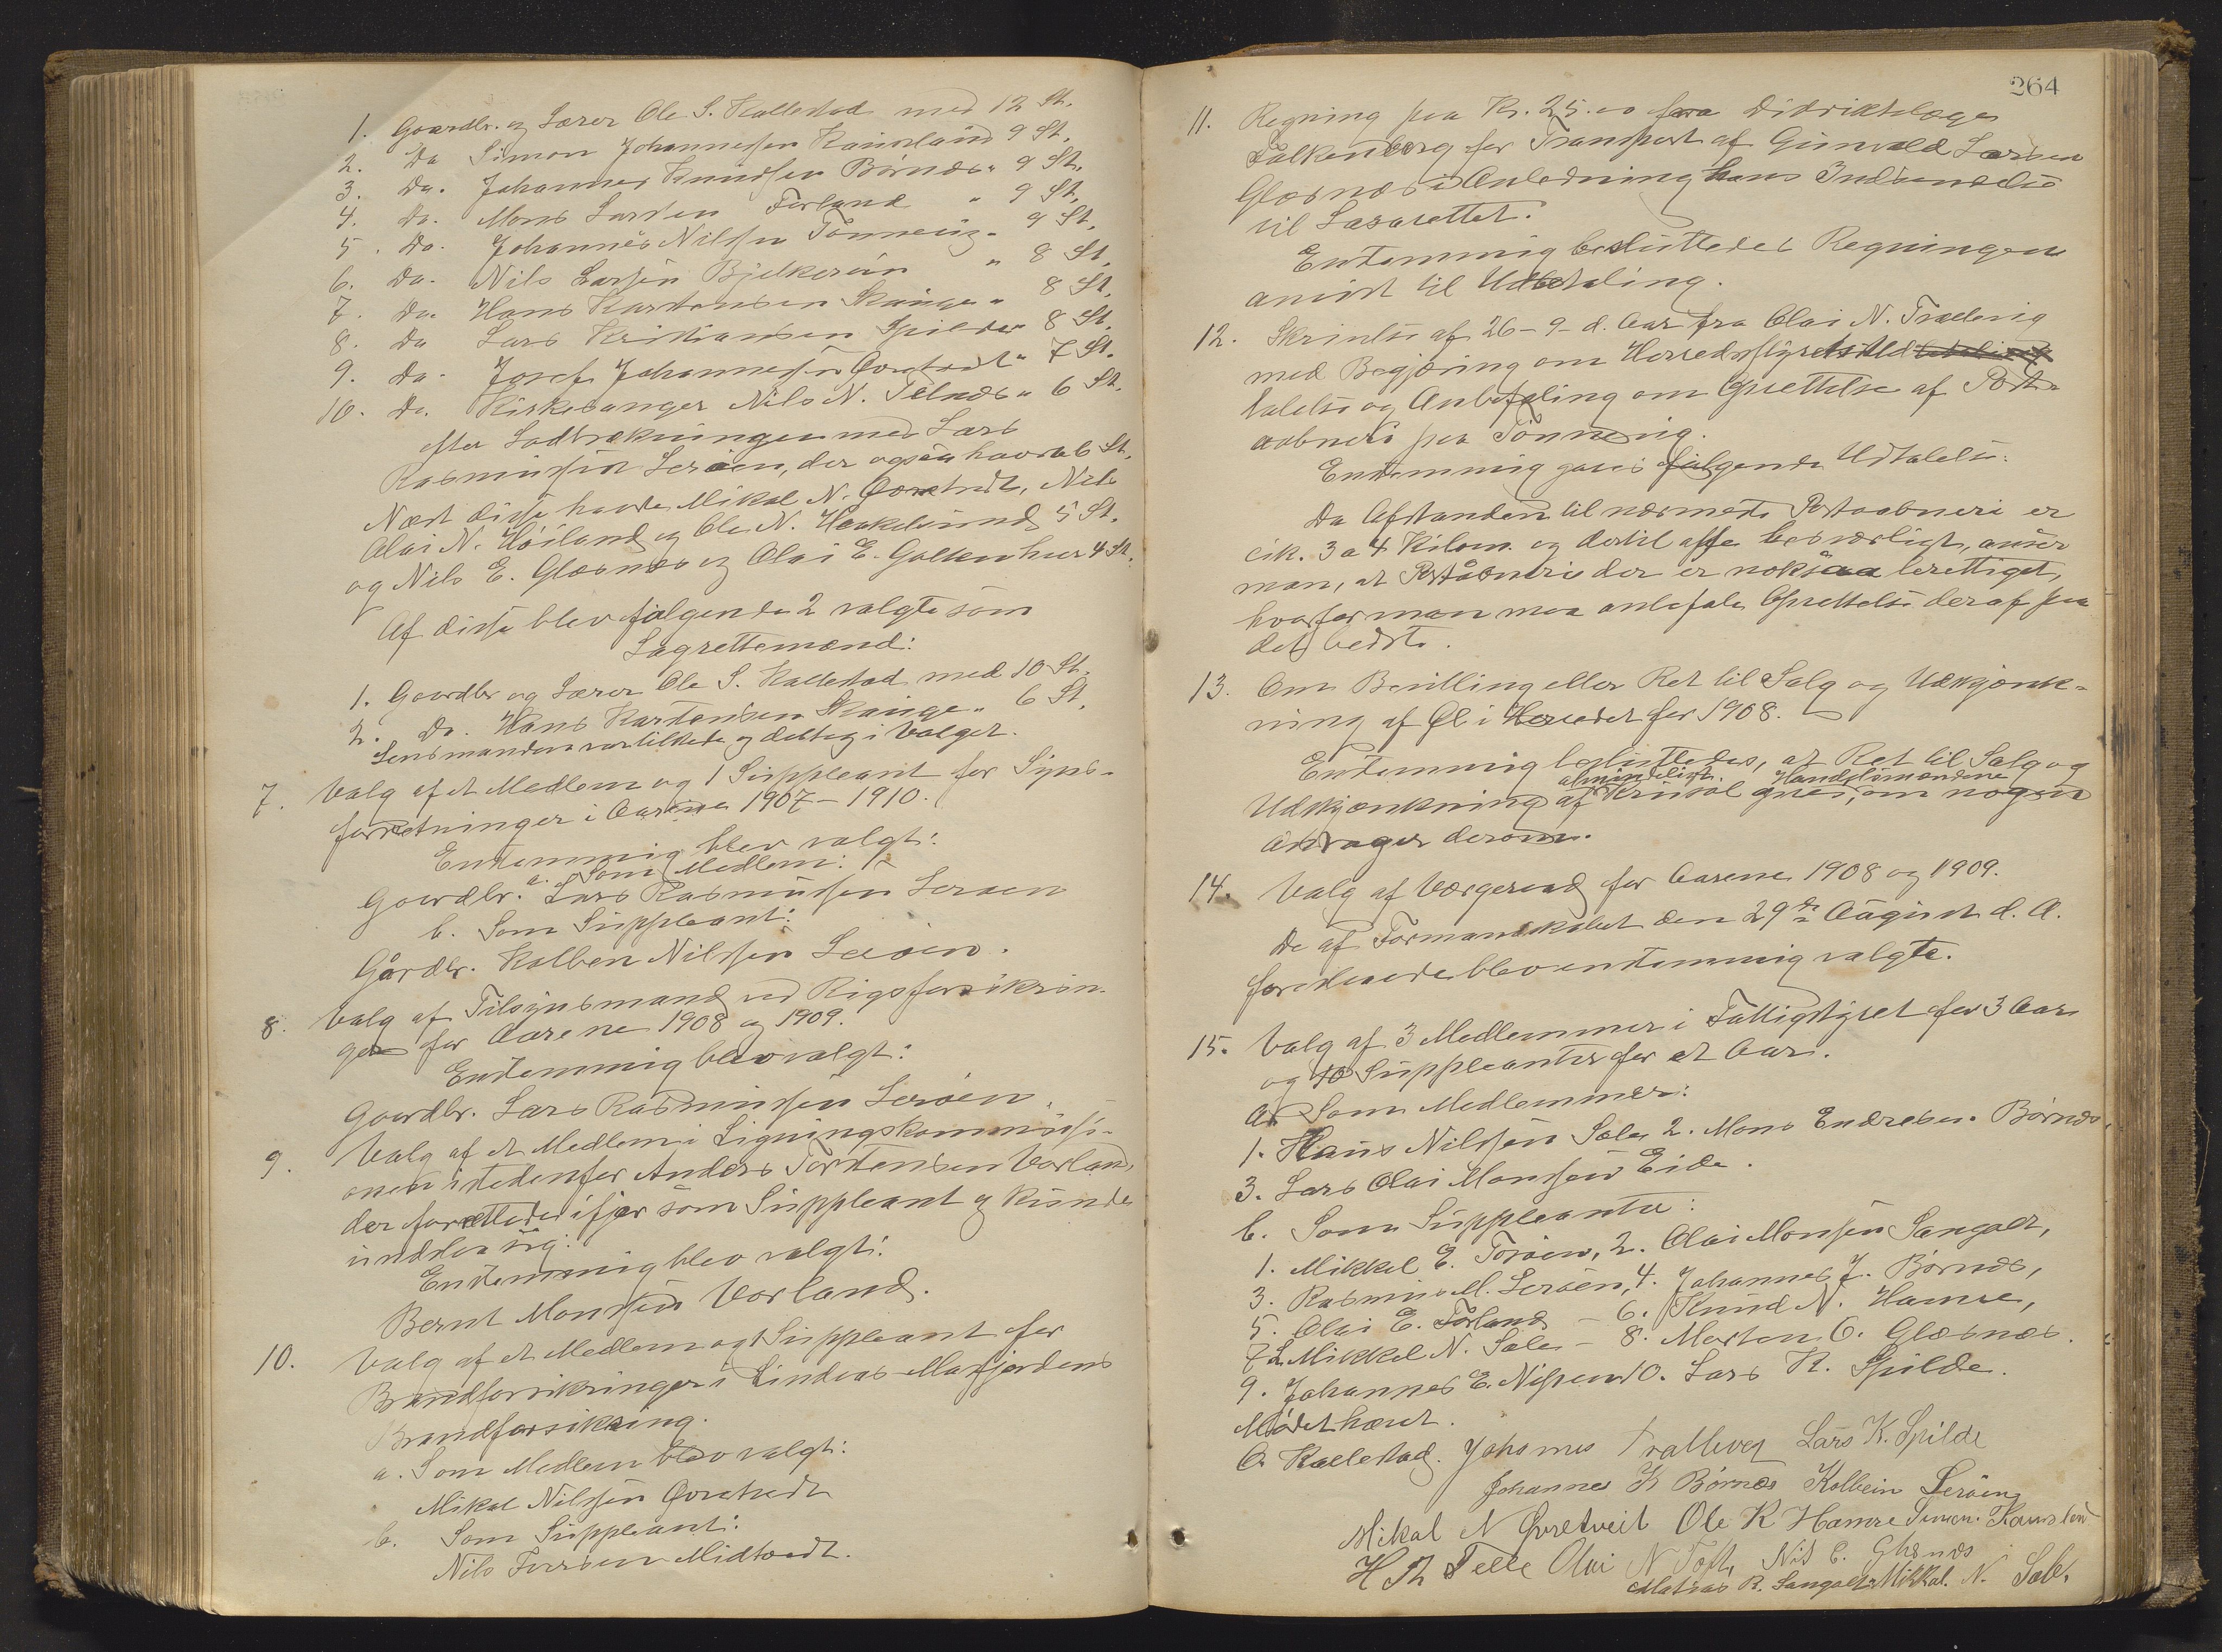 1. Gaardbr. og Lærer Ole S. Kallestad med 12 St.
2. Do Simon Johannessen Kausland 9 St.
3. Do. Johannes Knudsen Børnæs " 9 St.
4. Do. Mons Larsen Forland " 9 St.
5. Do. Johannes Nilssen Tønnevig " 9 St.
6. Do. Nils Larsen Bjelkerøen " 8 St.
7. Do Hans Karstensen Skauge " 8 St.
8. Do Lars Kristiansen Spilde " 8 St.
9. Do. Josef Johannessen Qvretvedt " 7 St.
10. Do. Kirkesanger Nils N. Telnæs " 6 St.
efter Lodtrækningen med Lars
Rasmussen Lerøen, der ogsaa havde 6 St.
Næst disse havde Mikal N. Qvretvedt, Nils
Olai N. Høiland og Ole N. Haakelsund 5 St.
og Nils E. Glæsnæs og Olai E. Golten hver 4 St.
Af disse blev følgende 2 valgte som
Lagrettemænd:
1. Gaardbr og Lærer Ole S. Kallestad med 10 St.
2. Do. Hans Karstensen Skauge " 6 St.
Lensmanden var tilstede og deltog i Valget.
7. Valg af et Medlem og 1 Suppleant for Syns-
forretninger i Aarene 1907-1910.
Enstemmig blev valgt:
a. Som Medlem:
Gaardbr. Lars Rasmussen Lerøen
b. Som Suppleant:
Gårdbr. Kolben Nilssen Lerøen.
8. Valg af Tilsynsmand ved Rigsforsikrin-
gen for Aarene 1908 og 1909.
Enstemmig blev valgt:
Gaardbr. Lars Rasmussen Lerøen.
9. Valg af et Medlem i Ligningskommissi-
onen istedenfor Anders Torstensen Vorland,
der forrettede ifjor som Suppleant og kunde
undslaa sig:
Enstemmig blev valgt:
Bernt Monssen Vorland.
10. Valg af et Medlem og 1 Suppleant for
Brandforsikringer i Lindaas-Masfjordens
Brandforsikring.
a. Som Medlem blev valgt:
Mikal Nilssen Qvretvedt
b. Som Suppleant:
Nils Iversen Midtvedt.
264
11. Regning paa Kr. 25.00 fra Distriktslæge
Falkenberg for Transport af Gunvald Larsen
Glæsnæs i Anledning hans Indsendelse
til Lasarettet.
Enstemmig besluttedes Regningen
anvist til Udbetaling.
12. Skrivelse af 26-9-d. Aar fra Olai N. Trællevig
med Begjæring om Herredsstyrets Ud
talelse og Anbefaling om Oprettelse af Post-
aabneri paa Tønnevig.
Enstemmig gaves følgende Udtalelse:
Da Afstanden til nærmeste Postaabneri er
cik. 3 a 4 Kilom. og dertil besværligt, anser
man, at Postaabneri der er noksaa berettiget,
hvorfor man maa anbefale Oprettelse deraf paa
det bedste.
13. Om Bevilling eller Ret til Salg og Udskjænk-
ning af Øl i Herredet for 1908.
Enstemmig besluttedes, at Ret til Salg og
almindeligt Handelsmændene
Udskjænkning af gives, om nogen
andrager derom.
14. Valg af Værgeraad for Aarene 1908 og 1909.
De af Formandskabet den 29de August d. A.
foreslaaede blev enstemmig valgte.
15. Valg af 3 Medlemmer i Fattigstyret for 3 Aar
og 10 Suppleanter for et Aar.
a. Som Medlemmer:
1. Hans Nilssen Sæle 2. Mons Endresen Børnæs,
3. Lars Olai Monssen Eide.
b. Som Suppleanter:
1. Mikkel E. Torøen, 2. Olai Monssen Sangolt,
3. Rasmus M. Lerøen, 4. Johannes J. Børnæs,
5. Olai E. Forland - 6. Knud N. Hamre,
7. Mikkel N. Sæle - 8. Morten O. Glæsnæs.
9. Johannes E. Nipen 10. Lars K. Spilde.
Mødet hævet.
O. Kallestad. Johannes Trællevig Lars K. Spilde
Johannes K Børnæs Kolbein Lerøen
Mikal N Qvretveit Ole K Hamre Simon Kausland
H Th Telle Olai N Toft, Nils E. Glesnæs
Matias R. Sangolt Mikkal. N. Sæle.